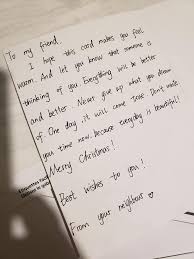 To my friend.
I hope this card makes you feel
warm. And let you know that someone is
thinking of you. Everything will be better
and better. Never give up what you draw
of. One day, it will come true. Don't waste
you time now, because everyday is beautiful!
Merry Christmas!
Best wishes to you!
From your neighbour